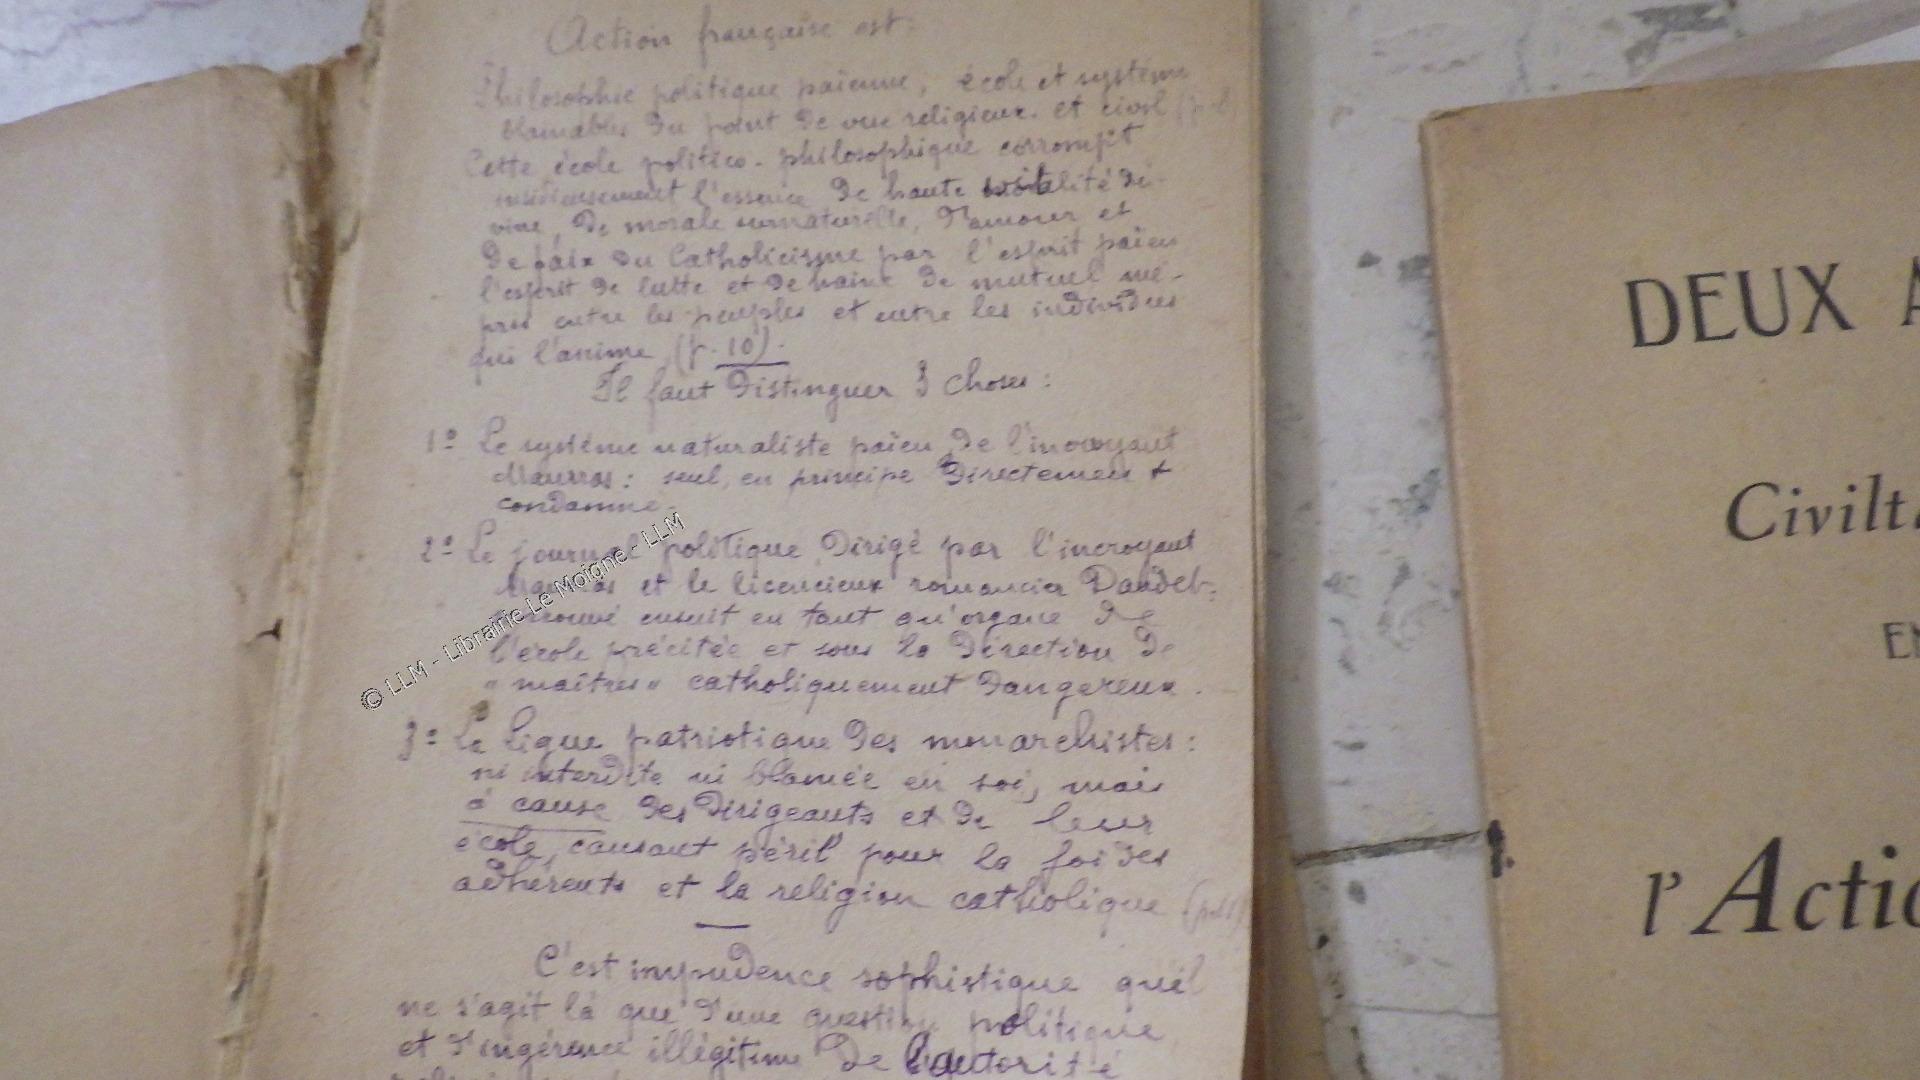 Action française est:
Philosophie politique païenne, école et système
blamables du point de vue religieux et civil
Cette école politico-philosophique corrompt
insidieusement l'essence de haute vitalité di-
vine, de morale surnaturelle, d'amour et
de paix du Catholicisme par l'esprit païen
l'esprit de lutte et de haine de mutuel mé-
pris entre les peuples et entre les individus
qui l'anime (p. 10).
Il faut distinguer 3 choses:
1° Le système naturaliste païen de l'incroyant
Maurras: seul, en principe directement
condamné.
2° Le journal politique dirigé par l'incroyant
Maurras et le licencieux romancier Daudet
ensuit en tant qu'organe de
l'école précitée et sous la direction de
"maîtres" catholiquement dangereux.
3° La ligue patriotique des monarchistes:
ni interdite ni blamée en soi, mais
à cause des dirigeants et de leur
école, causant péril pour la foi des
adhérents et la religion catholique
C'est impudence sophistique qu'il
ne s'agit là que d'une question politique
et d'ingérence illégitime de l'autorité
© LLM - Librairie Le Moigne - LLM
DEUX A
Civilt
EN
l'Actio